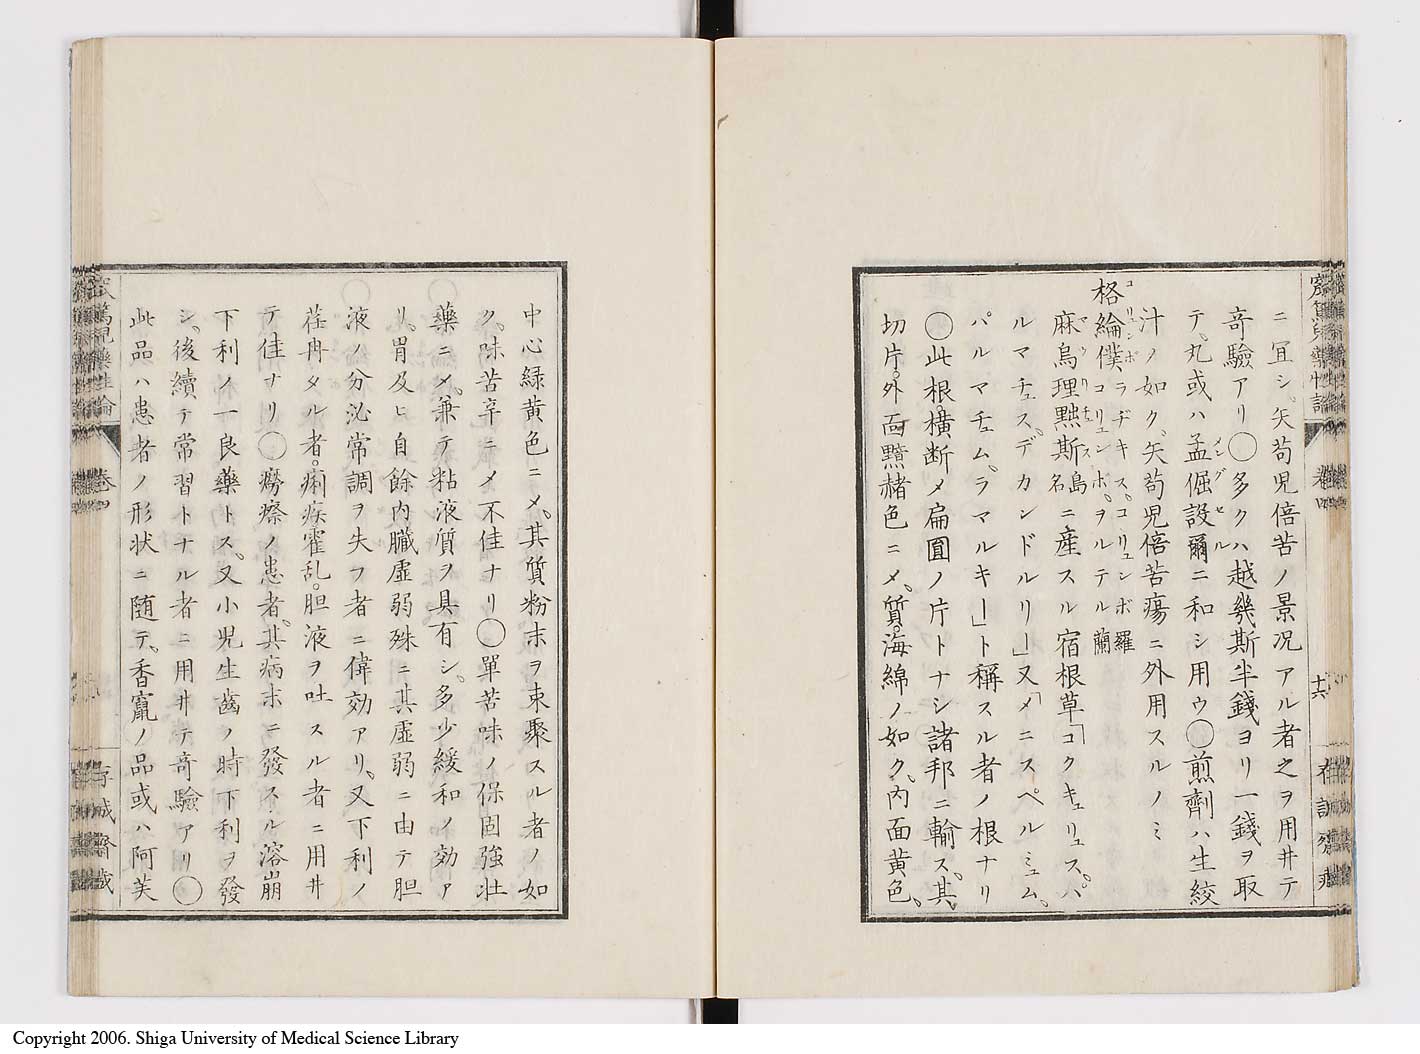 ニ冝シ。矢苟児倍苦ノ景况アル者之ヲ用井テ
奇驗アリ◯多クハ越幾斯半錢ヨリ一錢ヲ取
テ。丸或ハ孟倔設爾ニ和シ用ウ◯煎劑ハ生絞
メングセル
汁ノ如ク、矢苟児倍苦瘍ニ外用スルノミ
格綸僕 ラヂキス。コリュンボ 羅 コリュンボ。ヲルテル 蘭
コリュンボ
麻烏理黙斯島名ニ産スル宿根草「コクキュリュス。パ
マウリチュス
ルマチュス。デカンドルリー」又「メニスペルミュム。
パルマチュム。ラマルキー」ト稱スル者ノ根ナリ
◯此根。横断メ扁圓ノ片トナシ諸邦ニ輸ス。其
切片。外面黯赭色ニメ。質。海綿ノ如ク。内面黄色。
十六
中心緑黄色ニメ。其質粉末ヲ束聚スル者ノ如
ク。味苦辛ニメ不佳ナリ◯單苦味ノ保固強壮
藥ニメ。兼テ粘液質ヲ具有シ。多少緩和ノ効ア
リ。胃及ヒ自餘内臓虚弱殊ニ其虚弱ニ由テ胆
液ノ分泌常調ヲ失フ者ニ偉効アリ。又下利ノ
荏冉タル者。痢疾霍乱。胆液ヲ吐スル者ニ用井
テ佳ナリ◯癆瘵ノ患者。其病末ニ發スル溶崩
下利ノ一良藥トス。又小児生齒ノ時下利ヲ發
シ。後續テ常習トナル者ニ用井テ奇驗アリ◯
此品ハ患者ノ形状ニ随テ。香竄ノ品或ハ阿芙
卷四
存誠齋蔵